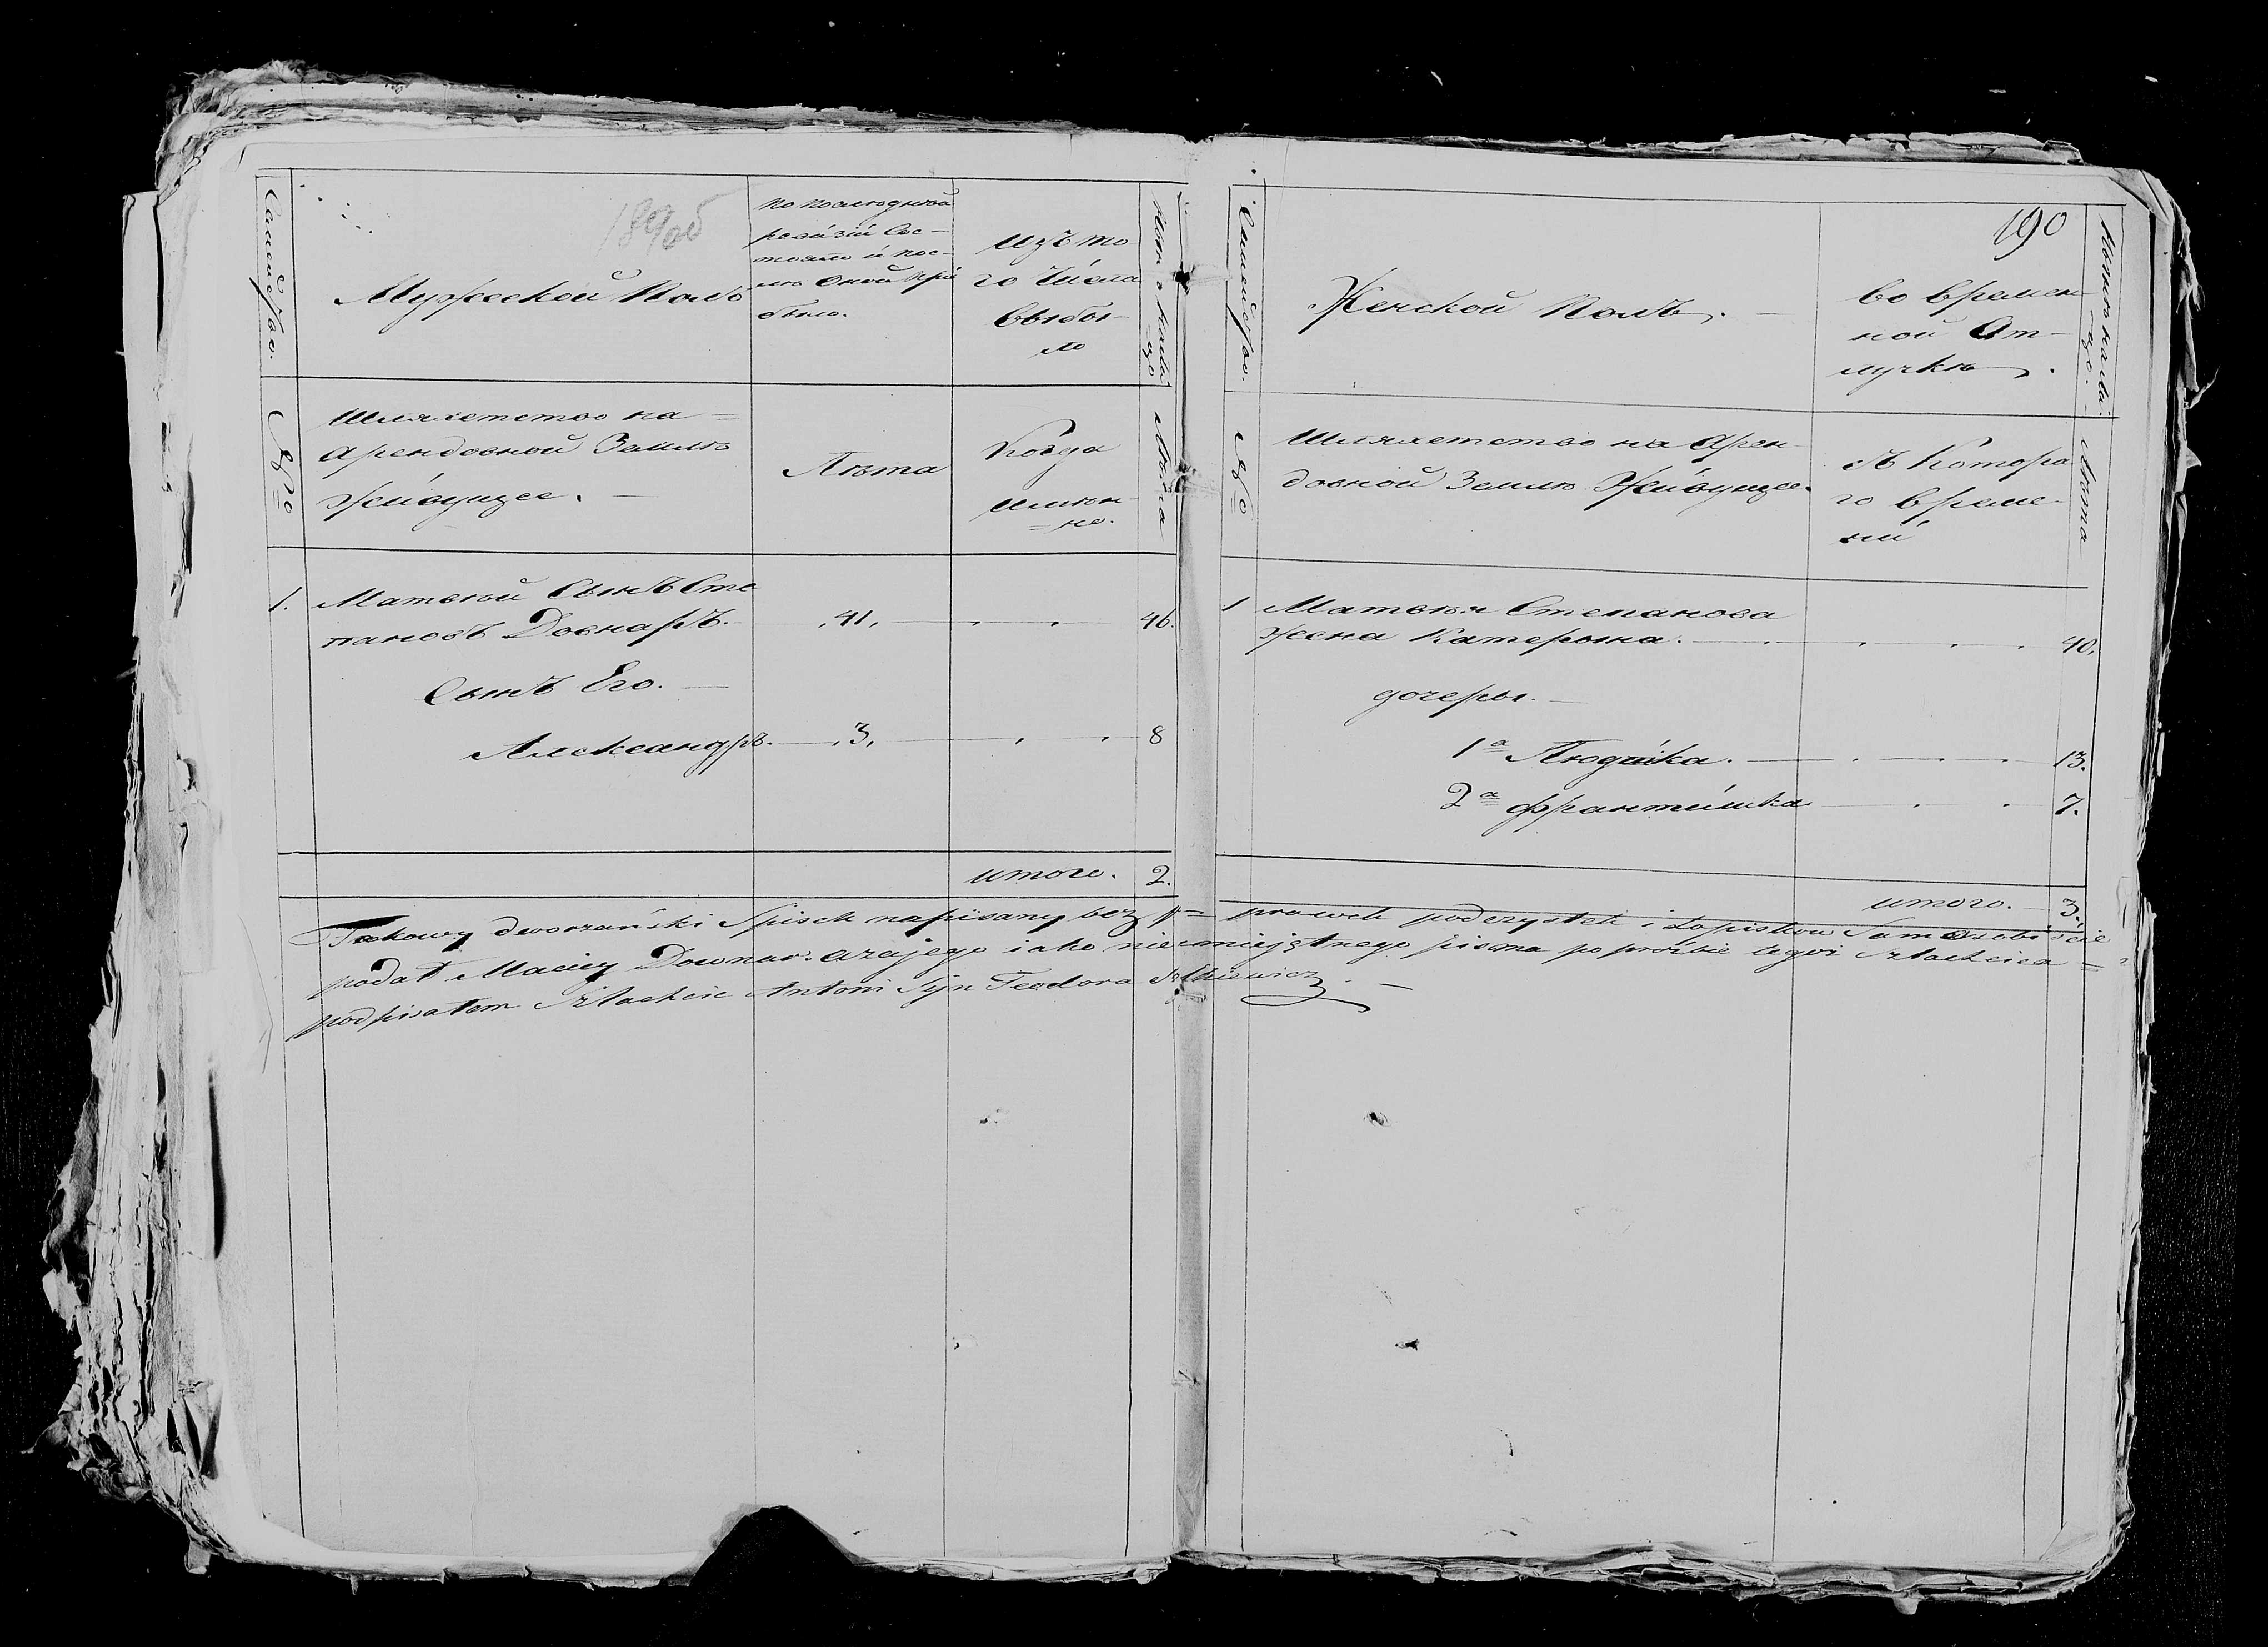 189об
Семейство.
Мужеской полъ
по последней
ревизіи сос-
тояло и пос-
ле оной при
было.
изъ то
го числа
выбы-
ло
ныне на ли
цо
№о
Шляхетство на
арендовной Земле
Живущее.
Лета
Когда
имян-
но.
Лета
1. Матвей Сынъ Сте
пановъ Довнаръ. 41. 46.
Сынъ Его.
Александръ. 3. 8
итого. 2.
190
Семейство.
Женской полъ.
во времен
ной От-
лучке.
ныне на ли
цо.
№о
Шляхетство на Арен-
довной Земле Живущее.
съ Котора
го време-
ни
Лета
1 Матвея Степанова
жена Катерына. 40.
дочеры.
1а Людвика. 13.
2а Франтишка 7.
итого. 3.
Takowy dworzański Spisek napisany bez prawek podczystek i dopiskow Samoosobiście
podał Maciey Downar. azajego iako nieumiejętnego pisma po prośbie tegoż Szlachcica
podpisałem Szlachcic Antoni Syn Teodora